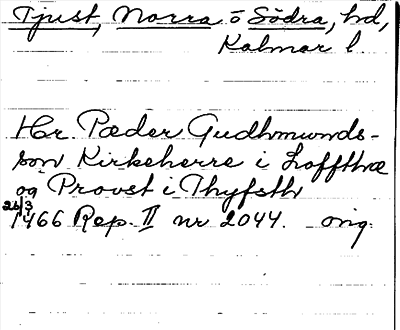 Tjust, Norra o Södra, hd,
Kalmar l
Hr Pæder Gudhmunds-
son Kirkeherre i Loffthæ
og Provst i Thyfsth
26/3 1466 Rep. II nr 2044. orig.